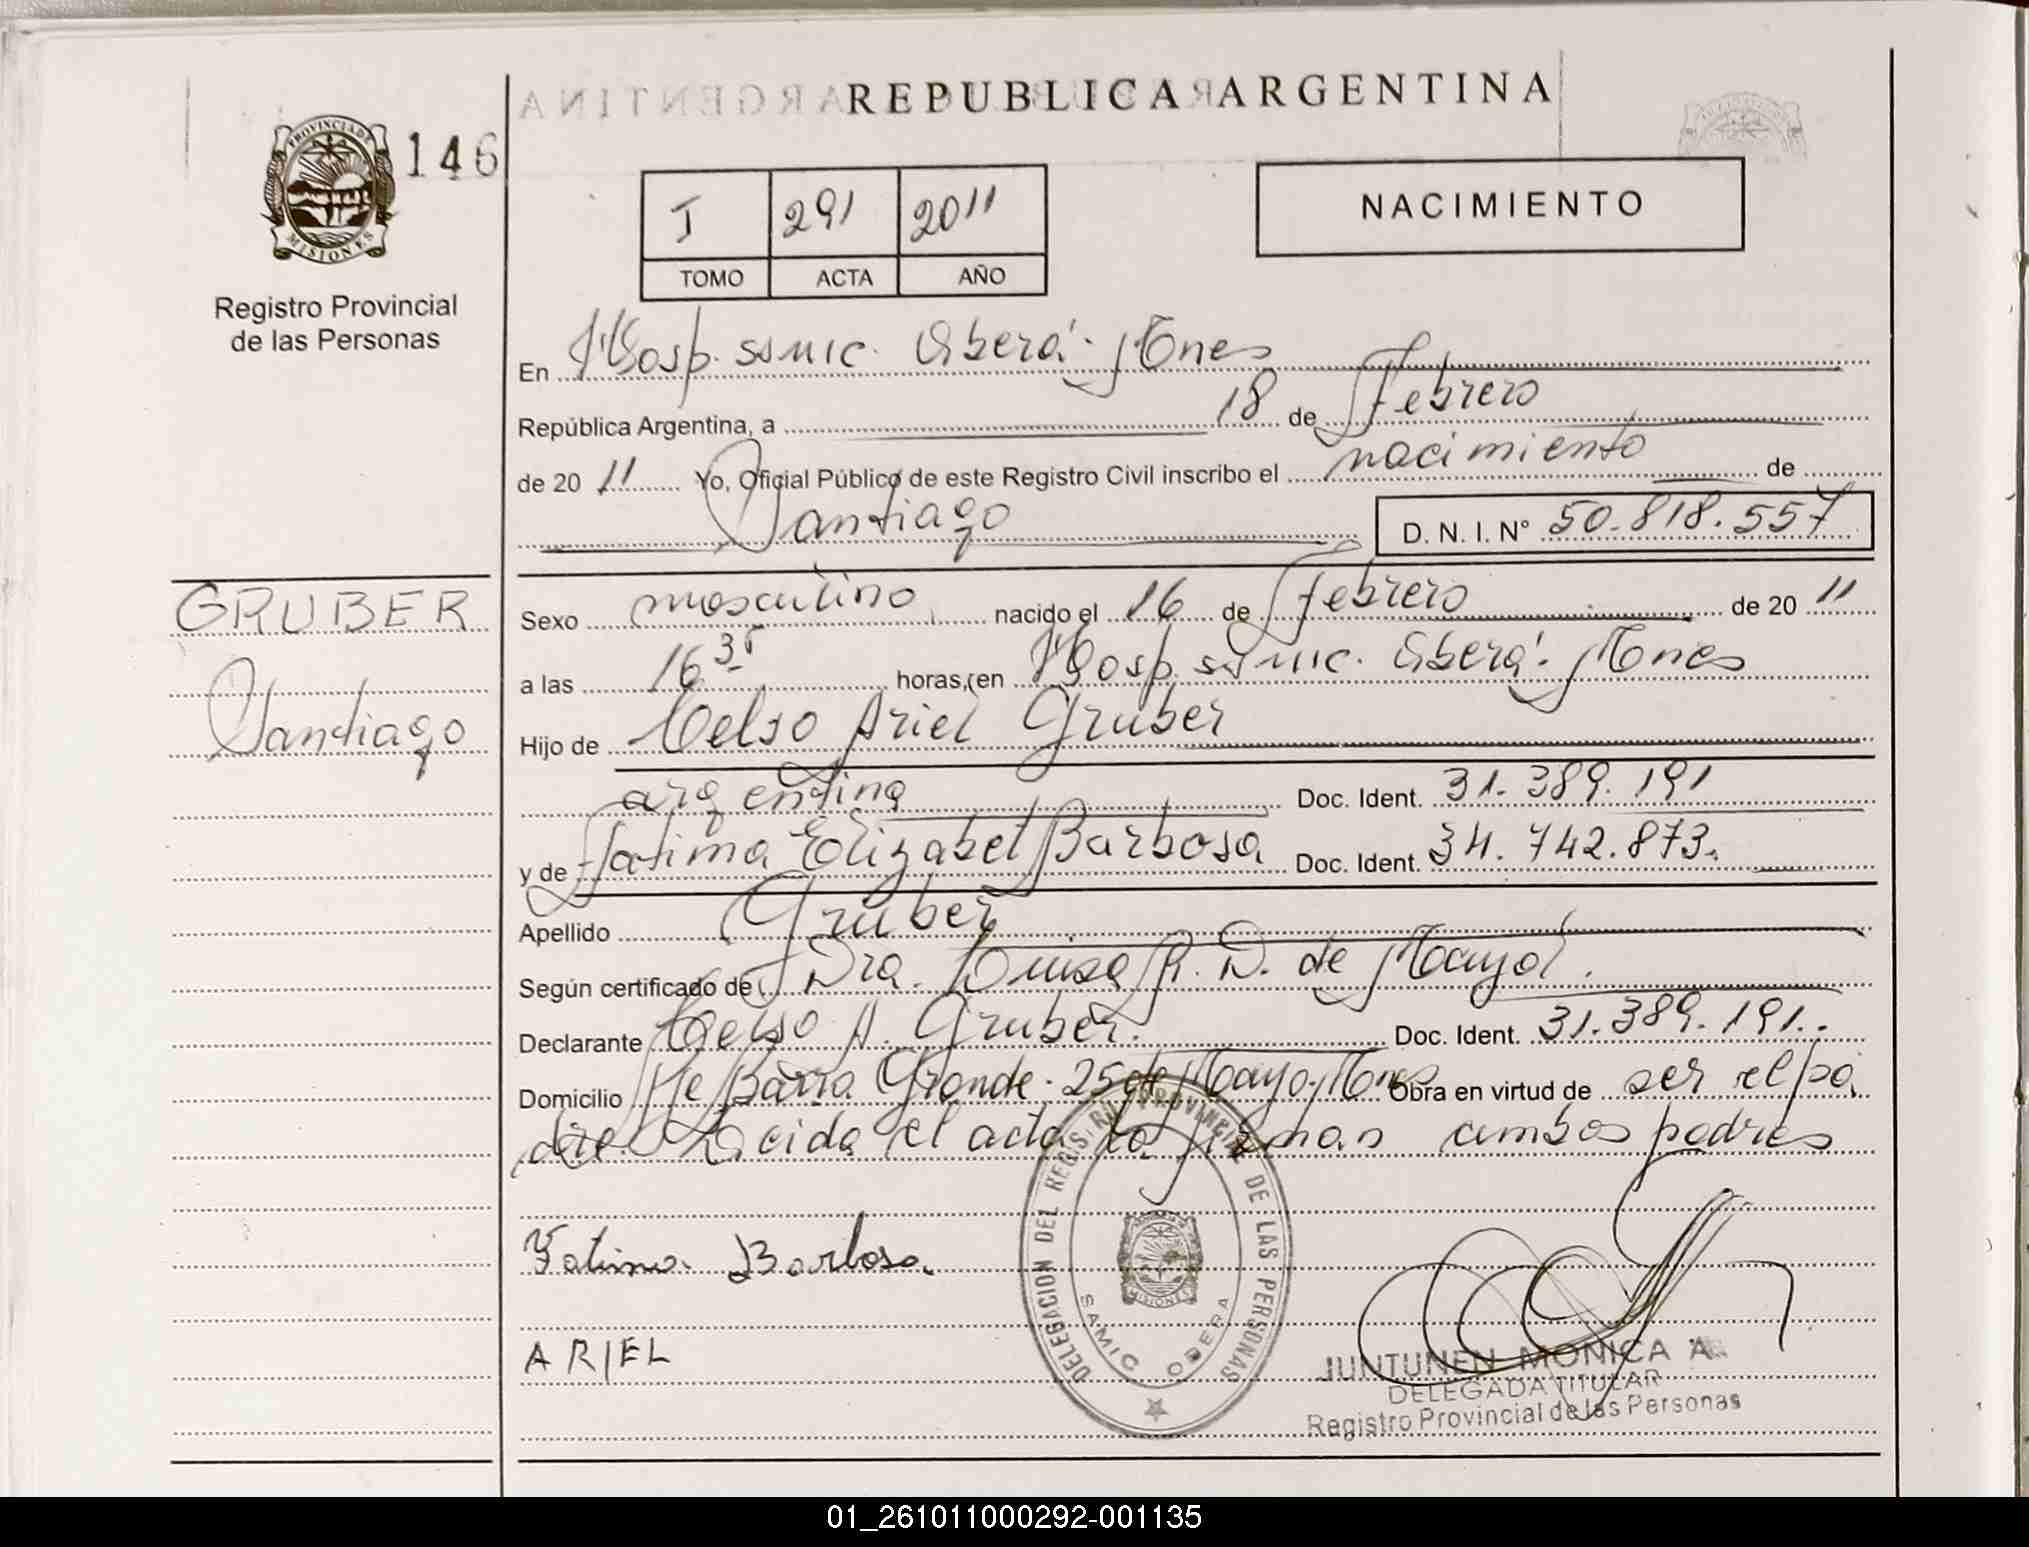 REPUBLICA ARGENTINA
PROVINCIA DE
MISIONES
146
Registro Provincial
de las Personas
I 291 2011
TOMO ACTA AÑO
NACIMIENTO
En Hosp. SAMIC. Oberá. Mnes
República Argentina, a 18 de Febrero
de 20 11 Yo, Oficial Público de este Registro Civil inscribo el nacimiento de
Santiago D. N. I. Nº 50.818.557
GRUBER
Santiago
Sexo masculino nacido el 16 de Febrero de 20 11
a las 16 35 horas, en Hosp. SAMIC. Oberá. Mnes
Hijo de Celso Ariel Gruber
argentina Doc. Ident. 31.389.191
y de Fatima Elizabet Barbosa Doc. Ident. 34.742.873.
Apellido Gruber
Según certificado de Dra. Luisa R. D. de Mayol.
Declarante Celso A. Gruber. Doc. Ident. 31.389.191.
Domicilio Barra Grande. 25 de Mayo. Mnes Obra en virtud de ser el pa
dre. Leida el acta la firman ambos padres
Fatima Barbosa
ARIEL
DELEGACION DEL REGISTRO PROVINCIAL DE LAS PERSONAS
MISIONES
SAMIC OBERA
JUNTUNEN MONICA A
DELEGADA TITULAR
Registro Provincial de las Personas
01_261011000292-001135